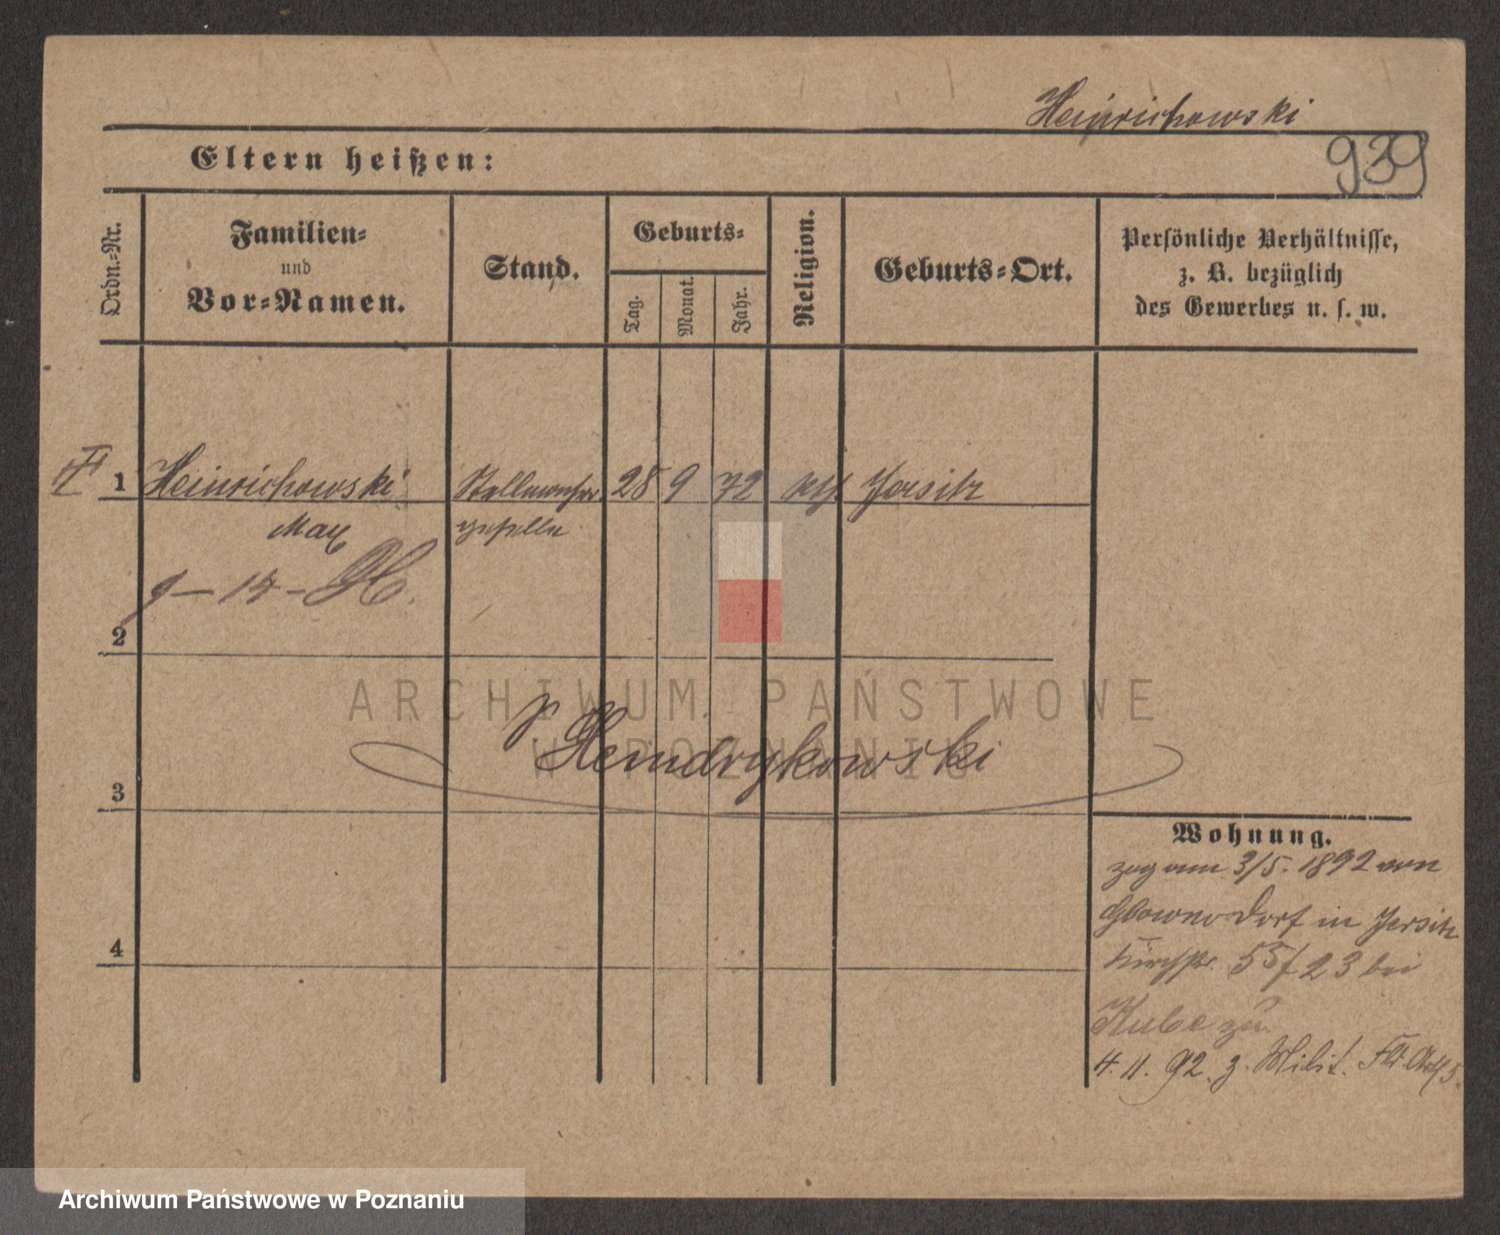 Heinrichowski
939
Eltern heißen:
Ordn.-Nr.
Familien-
und
Vor-Namen.
Stand.
Geburts-
Tag.
Monat.
Jahr.
Religion.
Geburts-Ort.
Persönliche Verhältnisse,
z. B. bezüglich
des Gewerbes u. s. w.
1 Heinrichowski Stellmacher 28 9 72 kth Jersitz
Max geselle
2
ARCHIWUM PAŃSTWOWE
W POZNANIU
Hendrykowski
3
Wohnung.
zog am 3/5. 1892 von
Glowno Dorf in Jersitz
Kirchstr. 55/23 bei
4
Kube zu.
4. 11. 92. z. Milit.
Archiwum Państwowe w Poznaniu